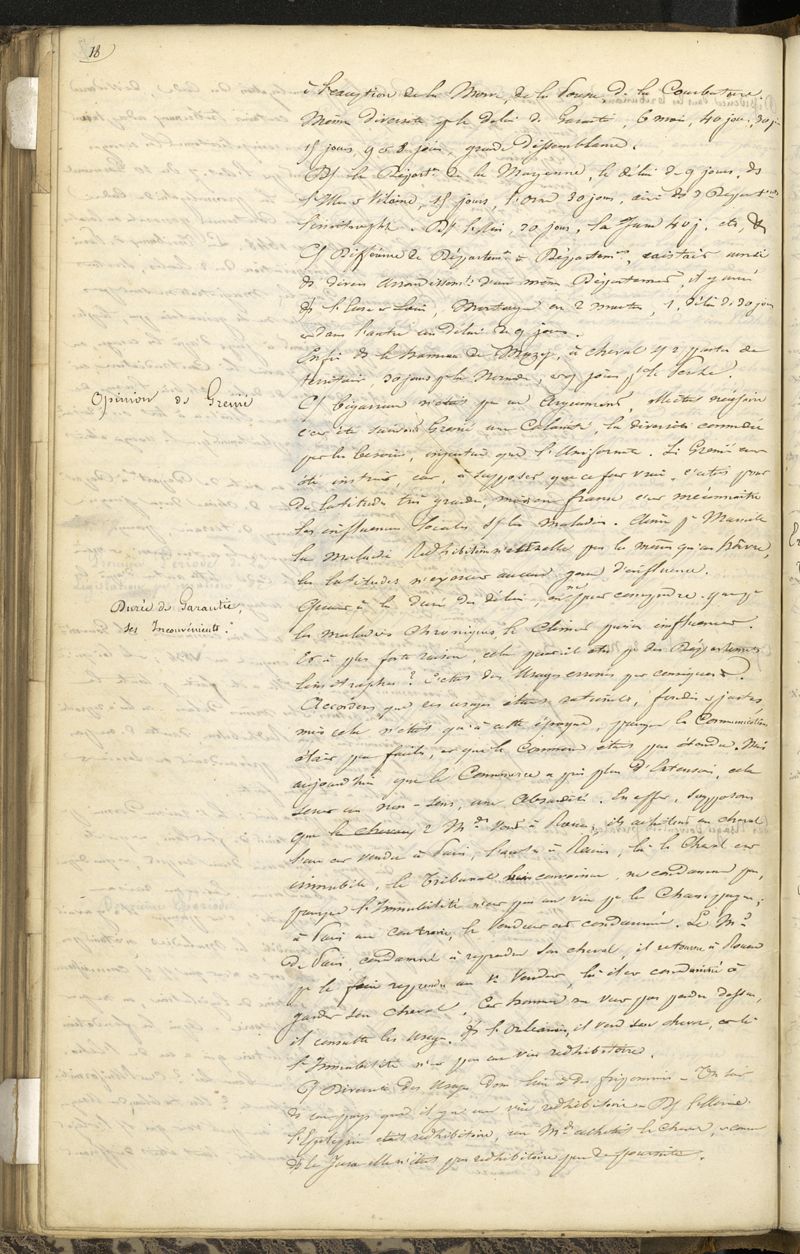 18
à l'exception de la Morve, de la Pousse, de la Courbature.
Même diversité pr le délai de Garantie, 6 mois, 40 jours, 30 jrs
15 jours, 9 et 8 jours, grande dissemblance.
Ds le Départ.t de la Mayenne, le délai de 9 jours, ds
l'Ille et Vilaine, 15 jours, l'Orne 30 jours, ainsi ds 3 Départ.ts
limitrophes. Ds l'Ain, 30 jours, le Jura 40 j. etc, &
Cs Différence de Départem.t à Départem.t, existait aussi
ds divers arrondissem.ts d'un même Département, il y avait
ds l'Eure et Loir, Mortagne en 2 , 1, délai de 30 jours
et dans l'autre un délai de 9 jours.
Enfin ds le hameau de , à cheval sr 2 parties de
territoire, 30 jours pr la Normandie, et 9 jours pr le Perche.
Opinion de Grenié
Cs bigarrure n'était pas un Argument, elle était nécessaire
c'eut été suivant Grenié une Calamité, la diversité commandée
par les besoins, que l'Uniformité. Si Grenié eut
été instruit, car, à supposer que ce fut vrai, c'était pour
des latitudes très grandes, mais en france c'eut méconnaître
les influences locales sr les maladies. Ainsi pr Marseille
la maladie Redhibitoire est-elle pas la même qu'au hâvre,
les latitudes n'exercent aucun genre d'influence.
Durée de Garantie,
ses Inconvénients.
Quant à la durée du délai, on ne peut comprendre que pr
les maladies Chroniques, le Climat puisse influencer.
Et à plus forte raison, cela peut-il être pr des Départements
limitrophes? C'était des Usages erronés par conséquent.
Accordons que ces usages étaient naturels, fondés et justes,
mais cela n'était qu'à cette époque, parceque la Communication
était peu facile, et que le Commerce était peu étendu. Mais
aujourd'hui que le Commerce a pris plus d'Extension, cela
serait un non-sens, une Absurdité. En effet, supposons
que le cheval 2 M.ds vont à Rouen, ils achètent un cheval
l'un est vendu à Paris, l'autre à Reims, là le Cheval est
immobile, le Tribunal convaincu, ne condamne pas,
parceque l'Immobilité n'est pas un vice pr la Champagne;
à Paris au contraire, le Vendeur est condamné. Le M.d
de Paris condamné à reprendre son cheval, il retourne à Rouen
pr le faire reprendre au 1er Vendeur, là il est condamné à
garder son cheval. Cet homme ne veut pas perdre dessus,
il consulte les Usages. Ds l'Orléanais, il vend son cheval, car là
l'Immobilité n'est pas un vice redhibitoire.
Cs Diversité des Usages donne lieu à des friponneries - On sait
ds un pays quand il y a un vice redhibitoire - Ds
l'Epilepsie était redhibitoire, un M.d achetait le cheval, et comme
ds le Jura elle n'était pas redhibitoire peu de poursuite.